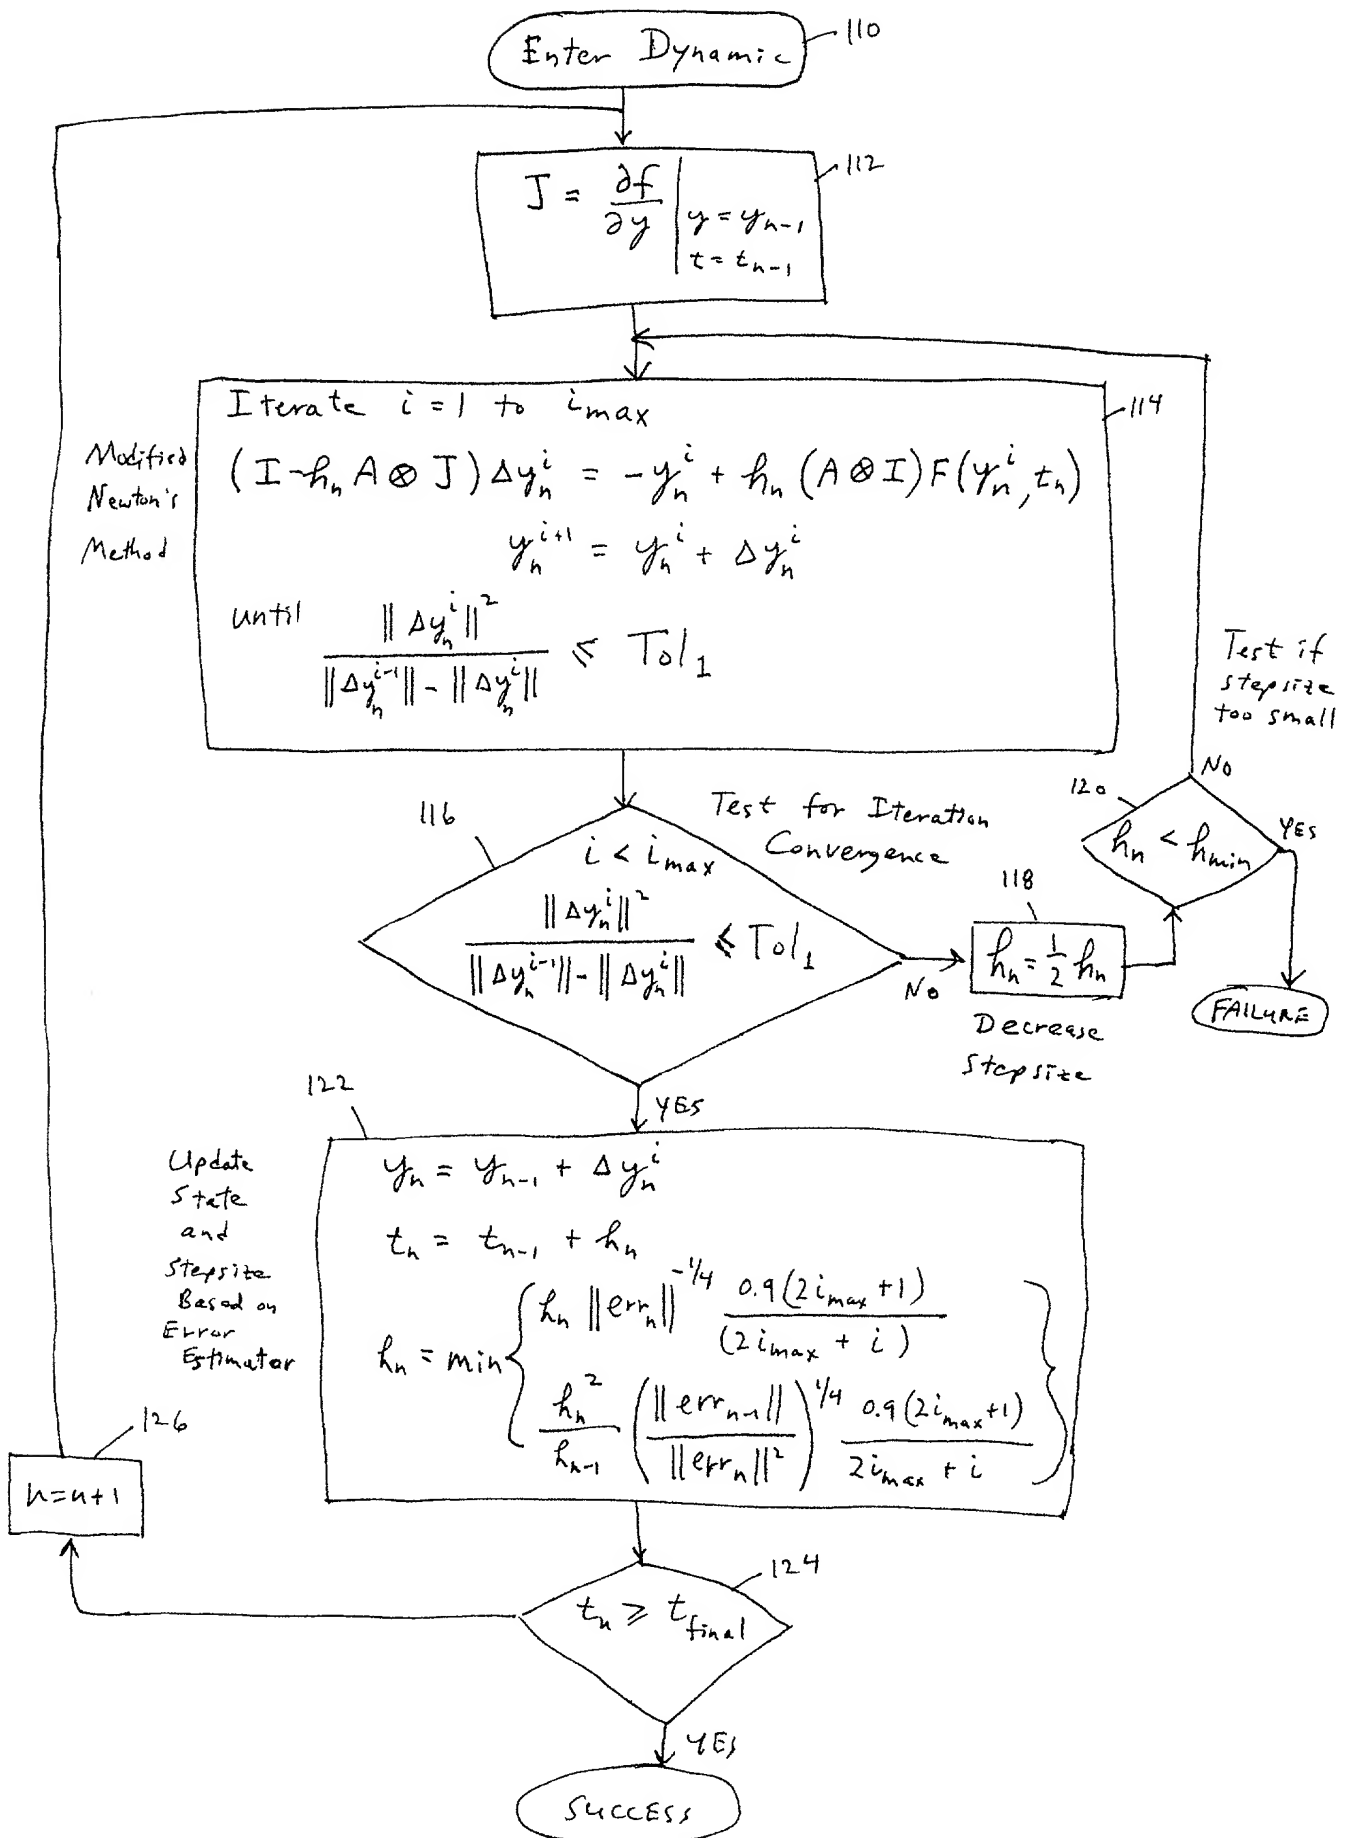 Enter Dynamic
110
J = ∂f/∂y | y = y_{n-1}
t = t_{n-1}
112
Iterate i = 1 to i_max
114
Modified
Newton's
Method
(I - h_n A ⊗ J) Δy_n^i = -y_n^i + h_n (A ⊗ I) F(y_n^i, t_n)
y_n^{i+1} = y_n^i + Δy_n^i
until ||Δy_n^i||² / (||Δy_n^{i-1}|| - ||Δy_n^i||) ≤ Tol_1
Test if
stepsize
too small
NO
120
h_n < h_min
YES
FAILURE
116
Test for Iteration
Convergence
i < i_max
||Δy_n^i||² / (||Δy_n^{i-1}|| - ||Δy_n^i||) ≤ Tol_1
NO
118
h_n = 1/2 h_n
Decrease
Stepsize
YES
122
Update
State
and
Stepsize
Based on
Error
Estimator
y_n = y_{n-1} + Δy_n^i
t_n = t_{n-1} + h_n
h_n = min { h_n ||err_n||^{-1/4} 0.9(2i_max + 1) / (2i_max + i)
h_n² / h_{n-1} (||err_{n-1}|| / ||err_n||²)^{1/4} 0.9(2i_max + 1) / 2i_max + i }
126
n = n+1
124
t_n ≥ t_final
YES
SUCCESS